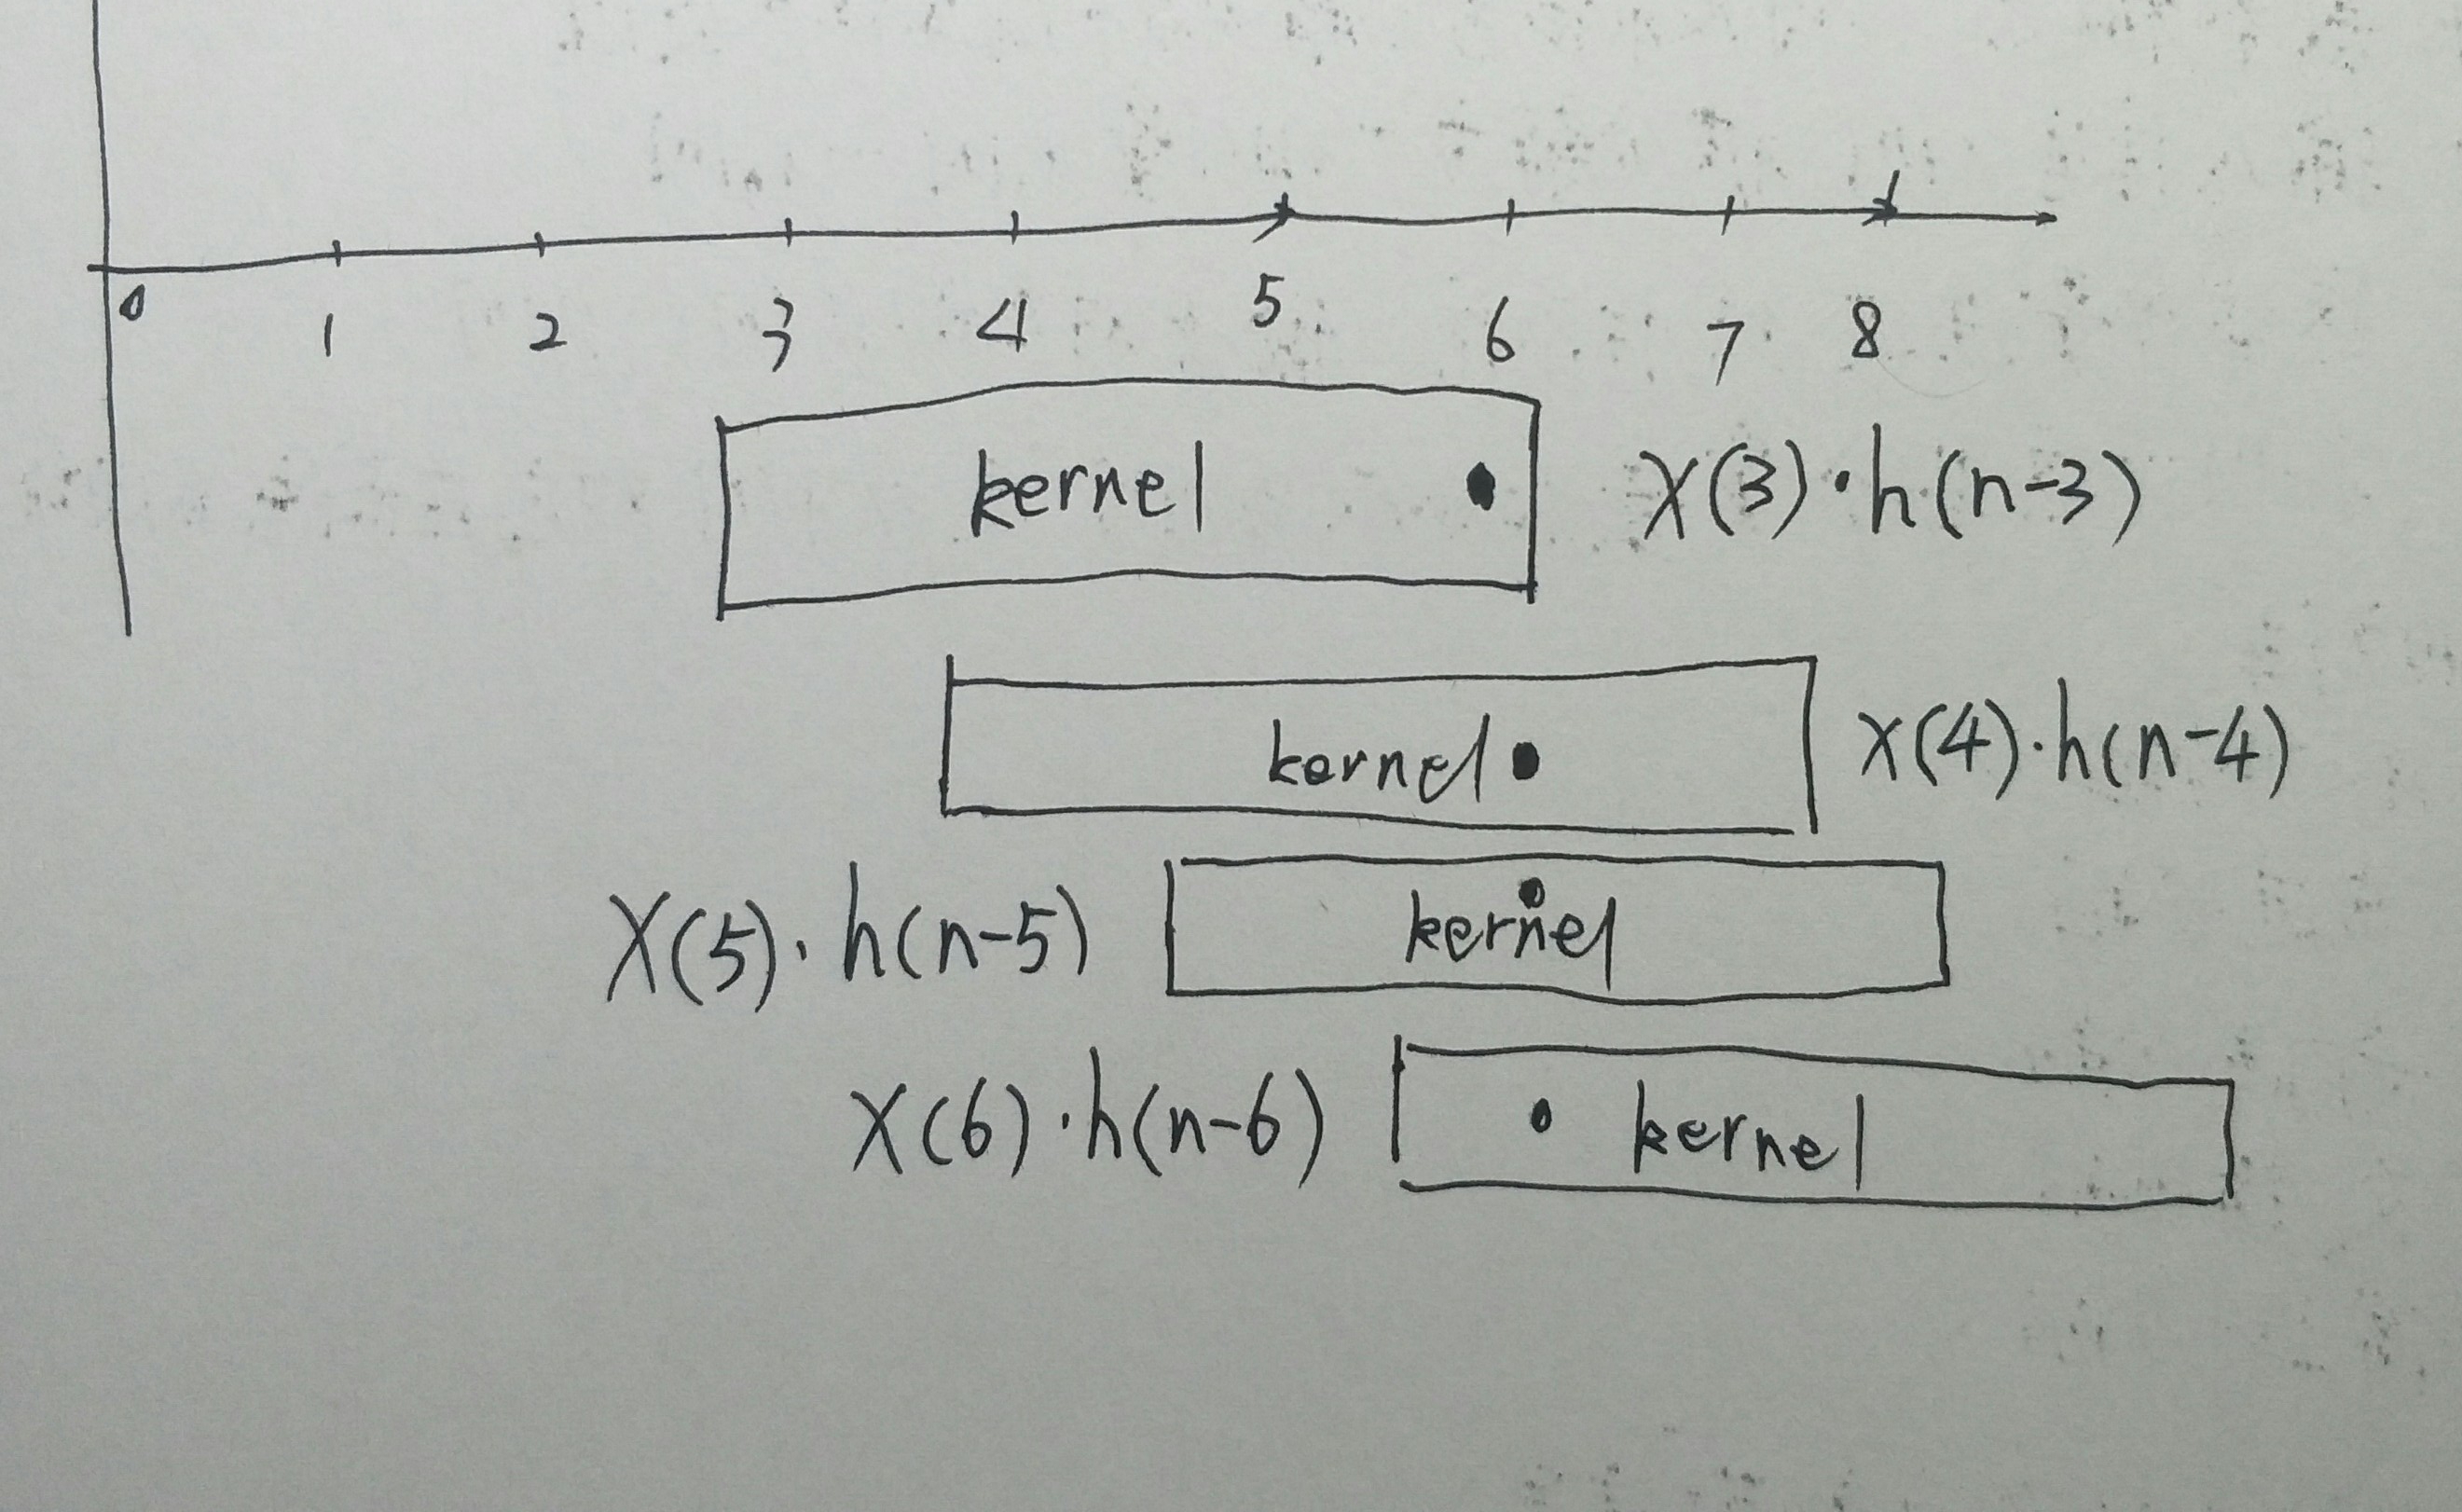 0 1 2 3 4 5 6 7 8
kernel X(3)·h(n-3)
kernel X(4)·h(n-4)
X(5)·h(n-5) kernel
X(6)·h(n-6) kernel